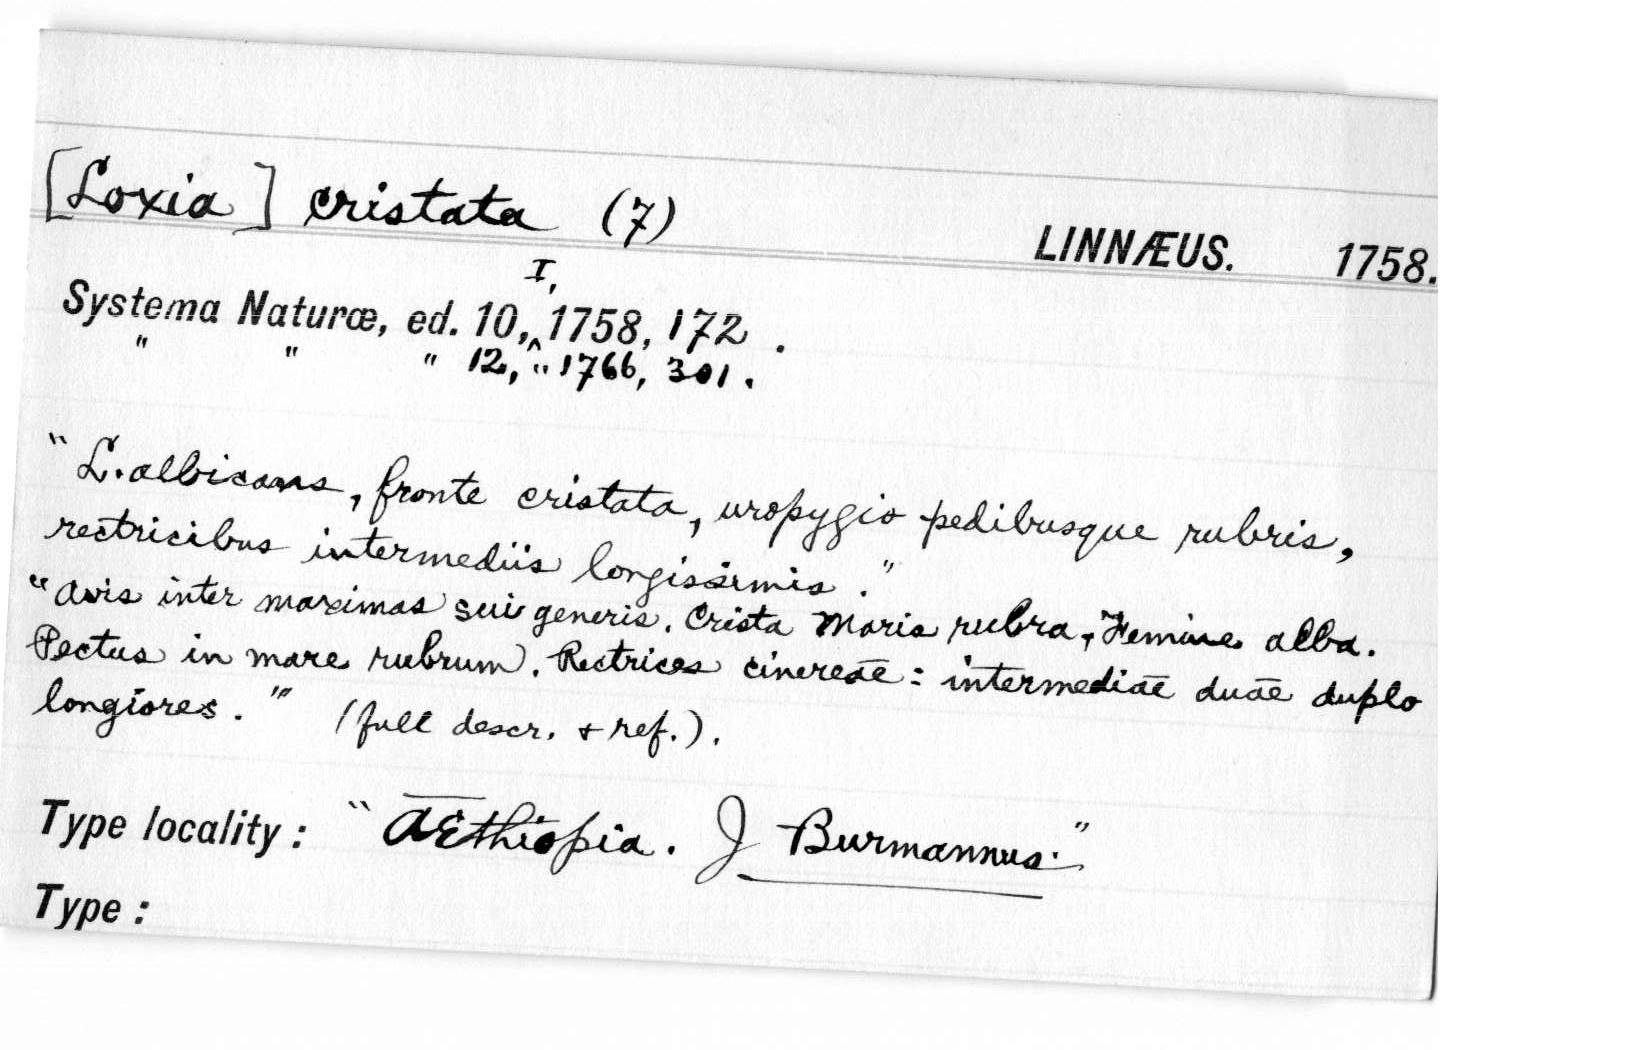 [Loxia] cristata (7)
LINNÆUS. 1758.
Systema Naturæ, ed. 10, I, 1758, 172.
" " " 12, " 1766, 301.
"L. albicans, fronte cristata, uropygio pedibusque rubris,
rectricibus intermediis longissimis."
"Avis inter maximas sui generis. Crista Maris rubra, Feminæ alba.
Pectus in mare rubrum. Rectrices cinereæ: intermediæ duæ duplo
longiores." (full descr. & ref.).
Type locality: "Æthiopia. J Burmannus."
Type: